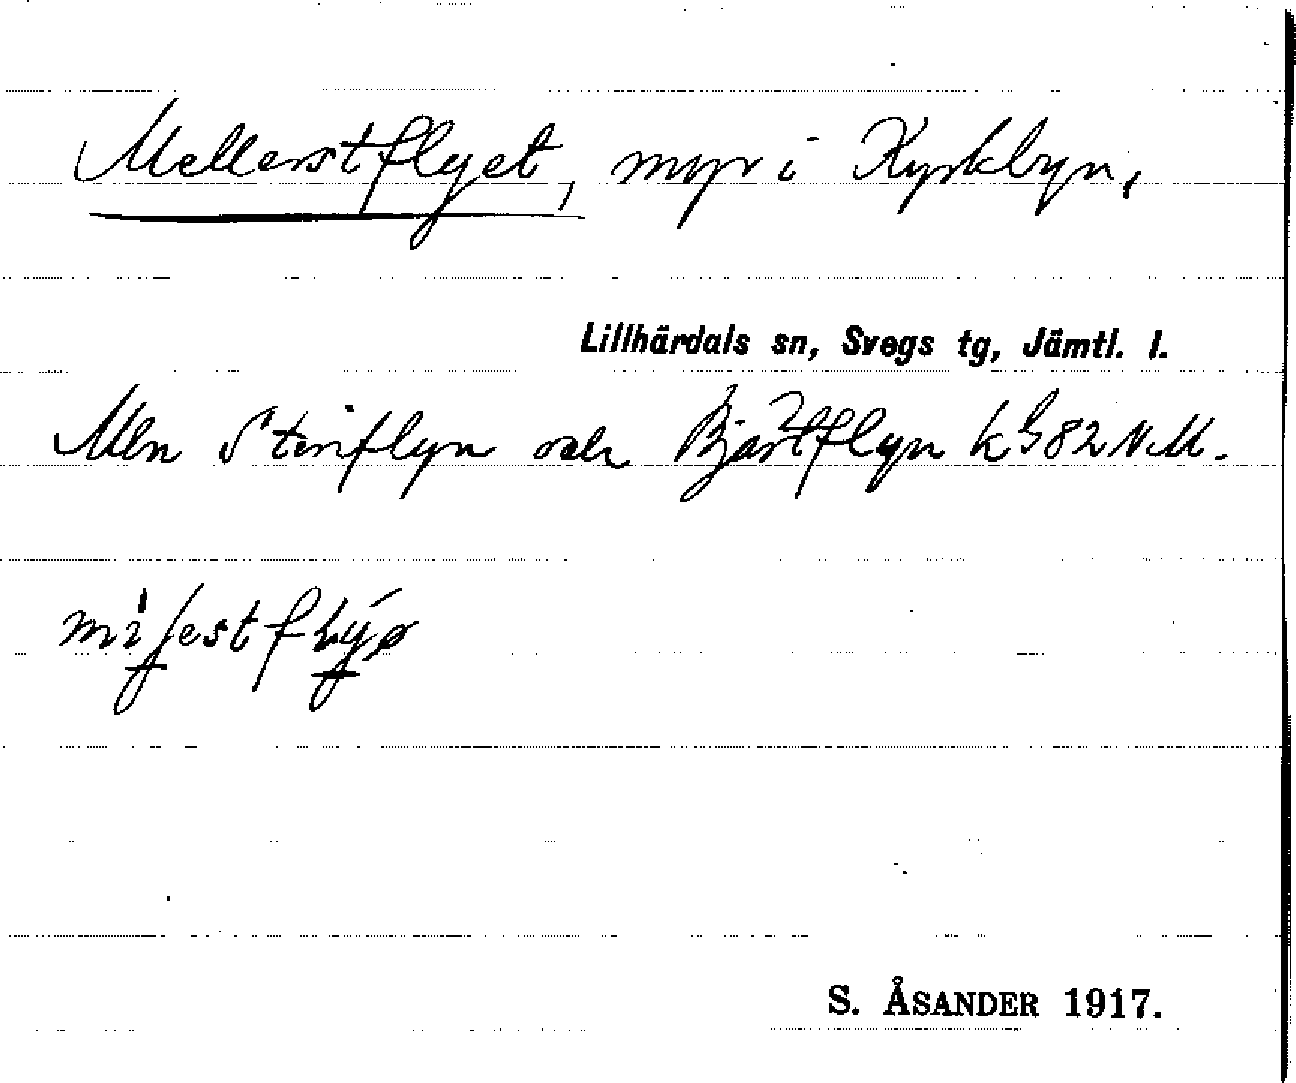 Mellerstflyet, myr i Kyrkbyn,
Lillhärdals sn, Svegs tg, Jämtl. l.
Mln Stenflyn och Bjärtflyn k G 82 N.M.
S. ÅSANDER 1917.